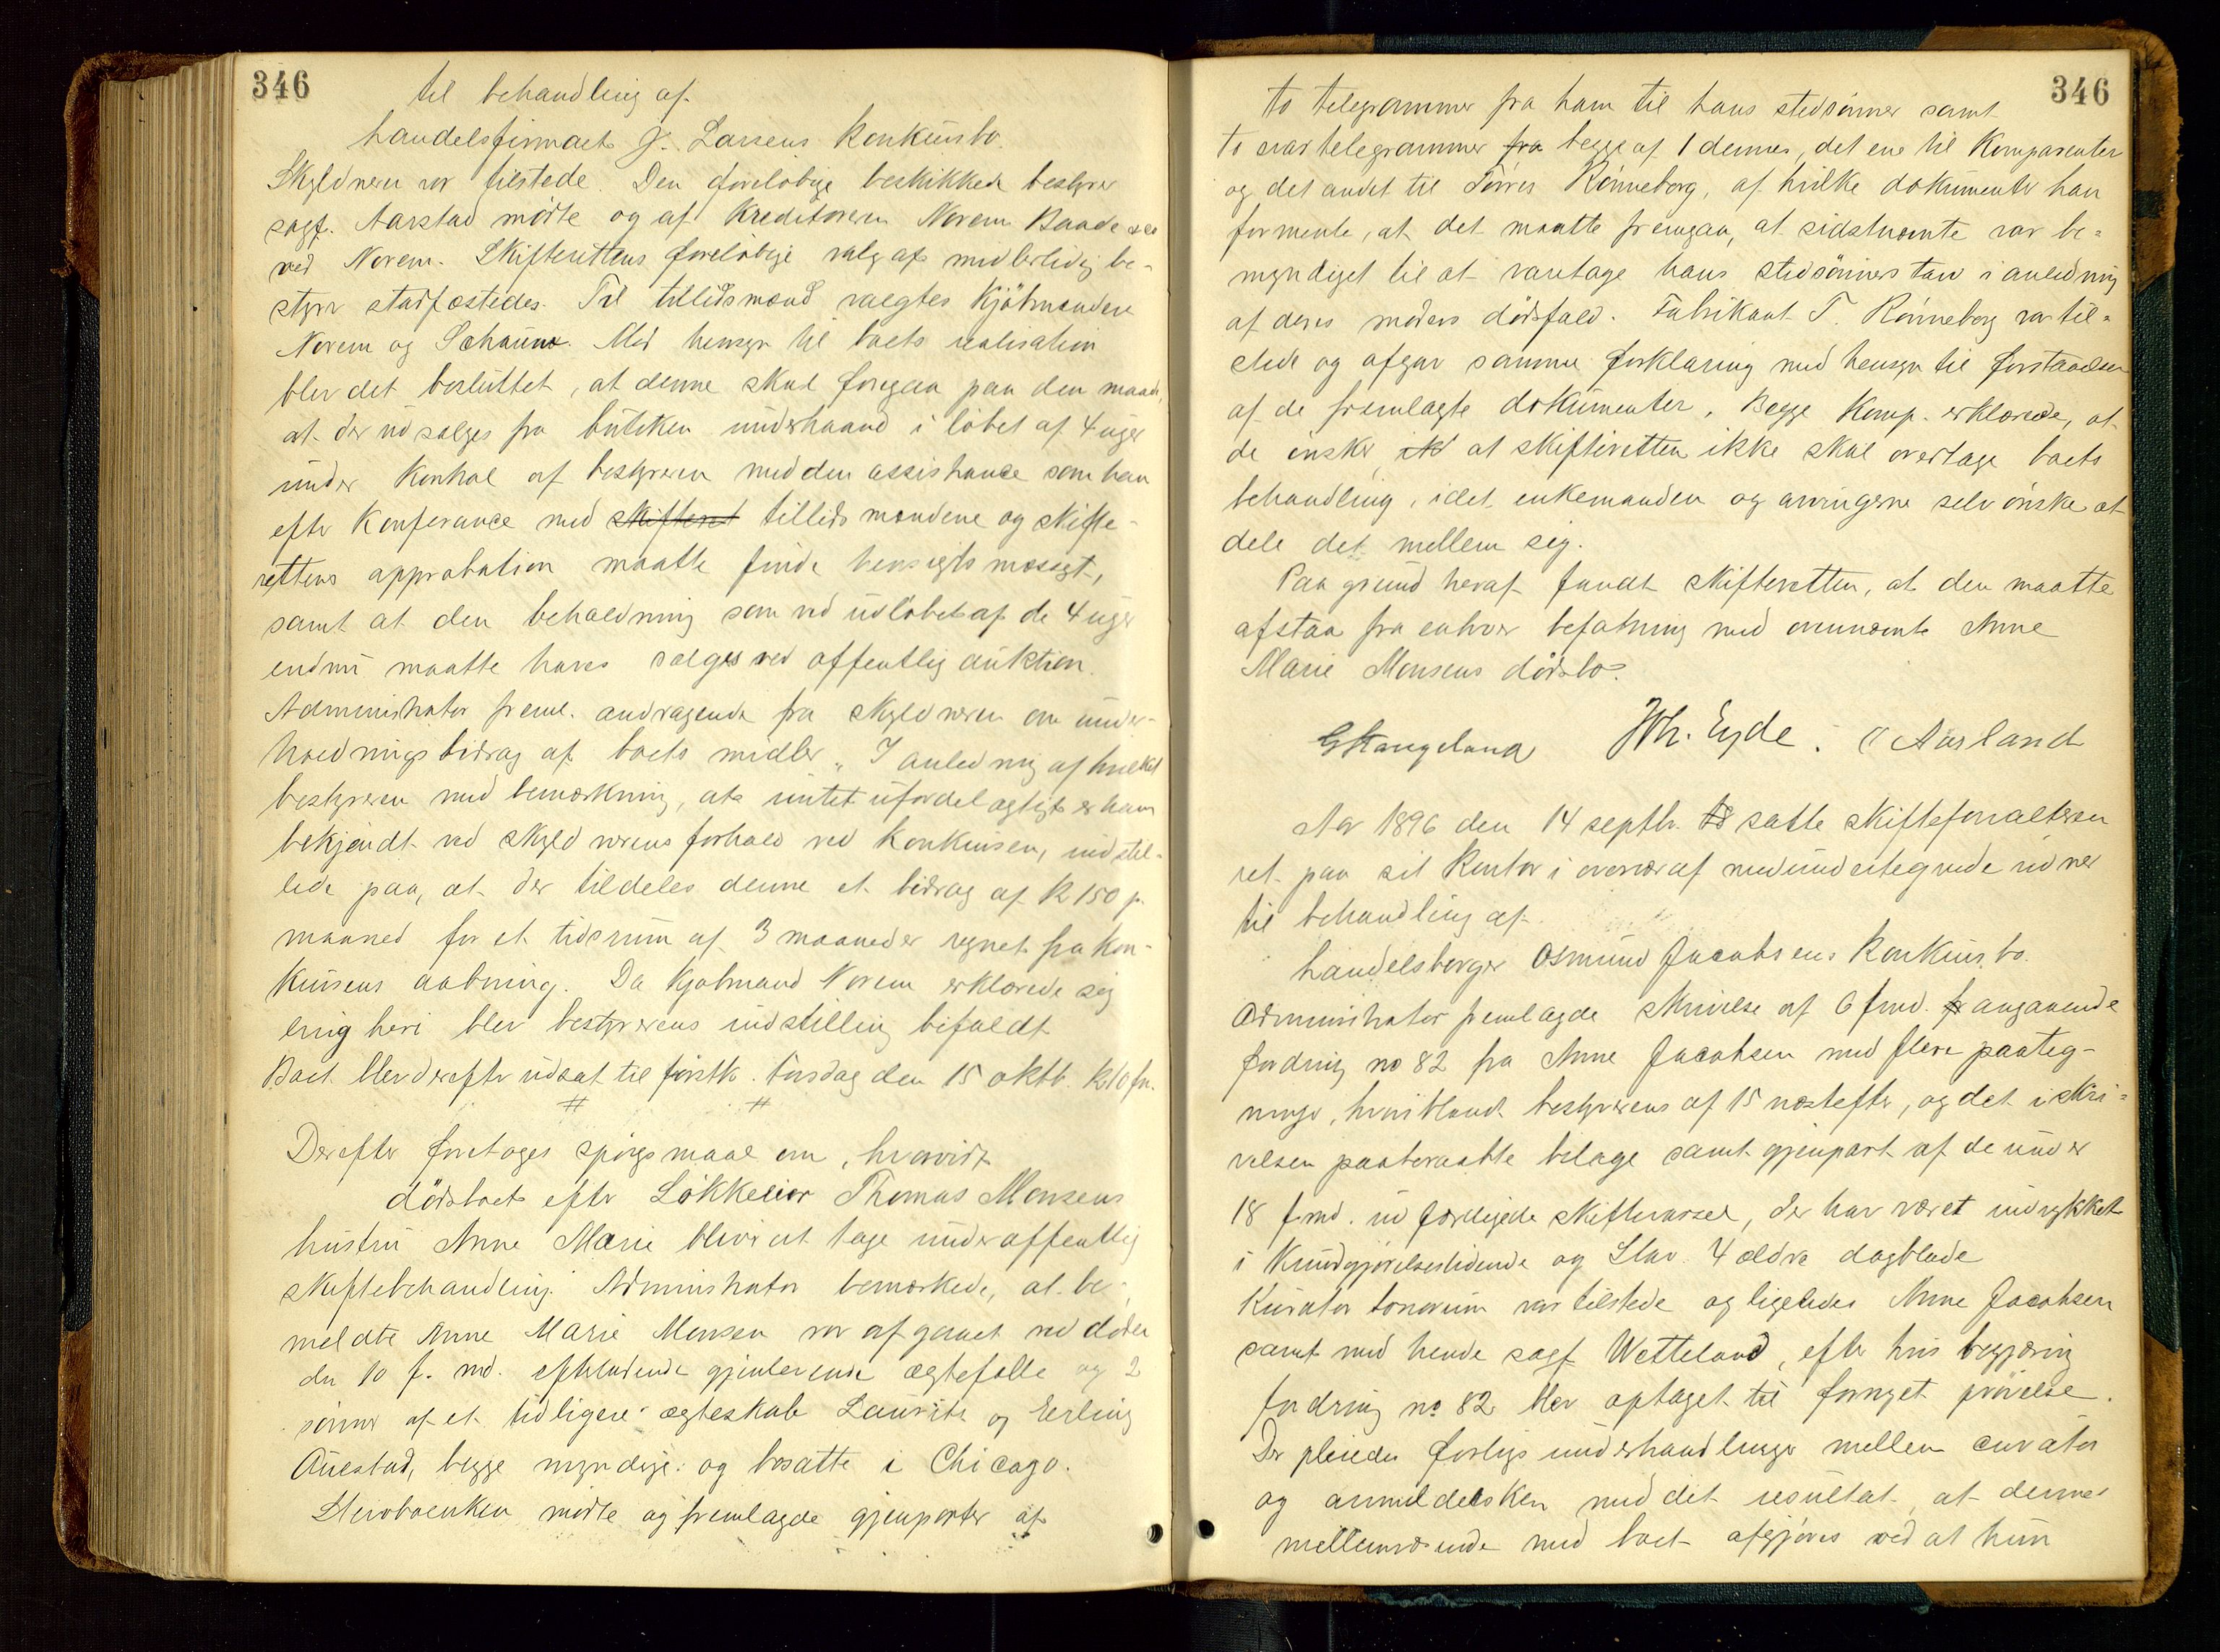 346
til behandling af
handelsfirmaet J. Larsens konkursbo.
Skyldneren var tilstede. Den foreløbige beskikkede bestyrer
sagf. Aarstad mødte og af kreditorerne Norem Baade & co
ved Norem. Skifterettens foreløbige valg af midlertidig be-
styrer stadfæstedes. Til tillidsmænd valgtes kjøbmændene
Norem og Schaum. Med hensyn til boets realisation
blev det besluttet, at denne skal foregaa paa den maade,
at der udsælges fra butiken underhaand i løbet af 4 uger
under kontrol af bestyreren med den assistance som han
efter konferance med skifteret tillidsmændene og skifte-
rettens approbation maatte finde hensigtsmæssigt,
samt at den beholdning som ved udløbet af de 4 uger
endnu maatte haves sælges ved offentlig auktion.
Administrator freml. andragende fra skyldneren om under-
holdningsbidrag af boets midler. I anledning af hvilket
bestyreren med bemærkning, at intet ufordelagtigt er ham
bekjendt ved skyldnerens forhold ved konkursen, indstil-
lede paa, at der tildeles denne et bidrag af k 150 p.
maaned for et tidsrum af 3 maaneder regnet fra kon-
kursens aabning. Da kjøbmand Norem erklærede sig
enig heri blev bestyrerens indstilling bifaldt.
Boet blev derefter udsat til førstk. torsdag den 15 oktb. kl 10 fm.
# #
Derefter foretoges spørgsmaal om, hvorvidt
dødsboet efter Løkkeeier Thomas Monsens
hustru Anne Marie bliver at tage under offentlig
skiftebehandling. Administrator bemærkede, at be-
meldte Anne Marie Monsen var afgaaet ved døden
den 10 f. md. efterladende gjenlevende ægtefælle og 2
sønner af et tidligere ægteskab Laurits og Erling
Auestad, begge myndige og bosatte i Chicago.
Stervboenken mødte og fremlagde gjenparter af
346
to telegrammer fra ham til hans stedsønner samt
to svartelegrammer fra begge af 1 dennes, det ene til komparenten
og det andet til Tørres Rønneberg, af hvilke dokumenter han
formente, at det maatte fremgaa, at sidstnævnte var be-
myndiget til at varetage hans stedsønners tarv i anledning
af deres moders dødsfald. Fabrikant T. Rønneberg var til-
stede og afgav samme forklaring med hensyn til forstaaelsen
af de fremlagte dokumenter. Begge komp. erklærede, at
de ønsker, ik at skifteretten ikke skal overtage boets
behandling, idet enkemanden og arvingerne selv ønske at
dele det mellem sig.
Paa grund heraf fandt skifteretten, at den maatte
afstaa fra enhver befatning med ovennævnte Anne
Marie Monsens dødsbo.
GStangeland Wh. Eyde. Aarland
Aar 1896 den 14 septbr. satte skifteforvalteren
ret paa sit kontor i overvær af medundertegnede vidner
til behandling af
handelsborger Osmund Jacobsens konkursbo.
Administrator fremlagde skrivelse af 6 f.md. angaaende
fordring no 82 fra Anne Jacobsen med flere paateg-
ninger, hvoriblandt bestyrerens af 15 næstefter, og det i skri-
velsen paaberaabte bilage samt gjenpart af de under
18 f.md. udfærdigede skiftevarsel, der har været indrykket
i kundgjørelsestidende og Stav. 4 ældre dagblade
Kurator bonorum var tilstede og ligeledes Anne Jacobsen
samt med hende sagf. Wetteland, efter hvis begjæring
fordring no 82 blev optaget til fornyet prøvelse.
Der pleiedes forligsunderhandlinger mellem curator
og anmeldelsken med det resultat, at dennes
mellemværende med boet afgjøres ved at hun